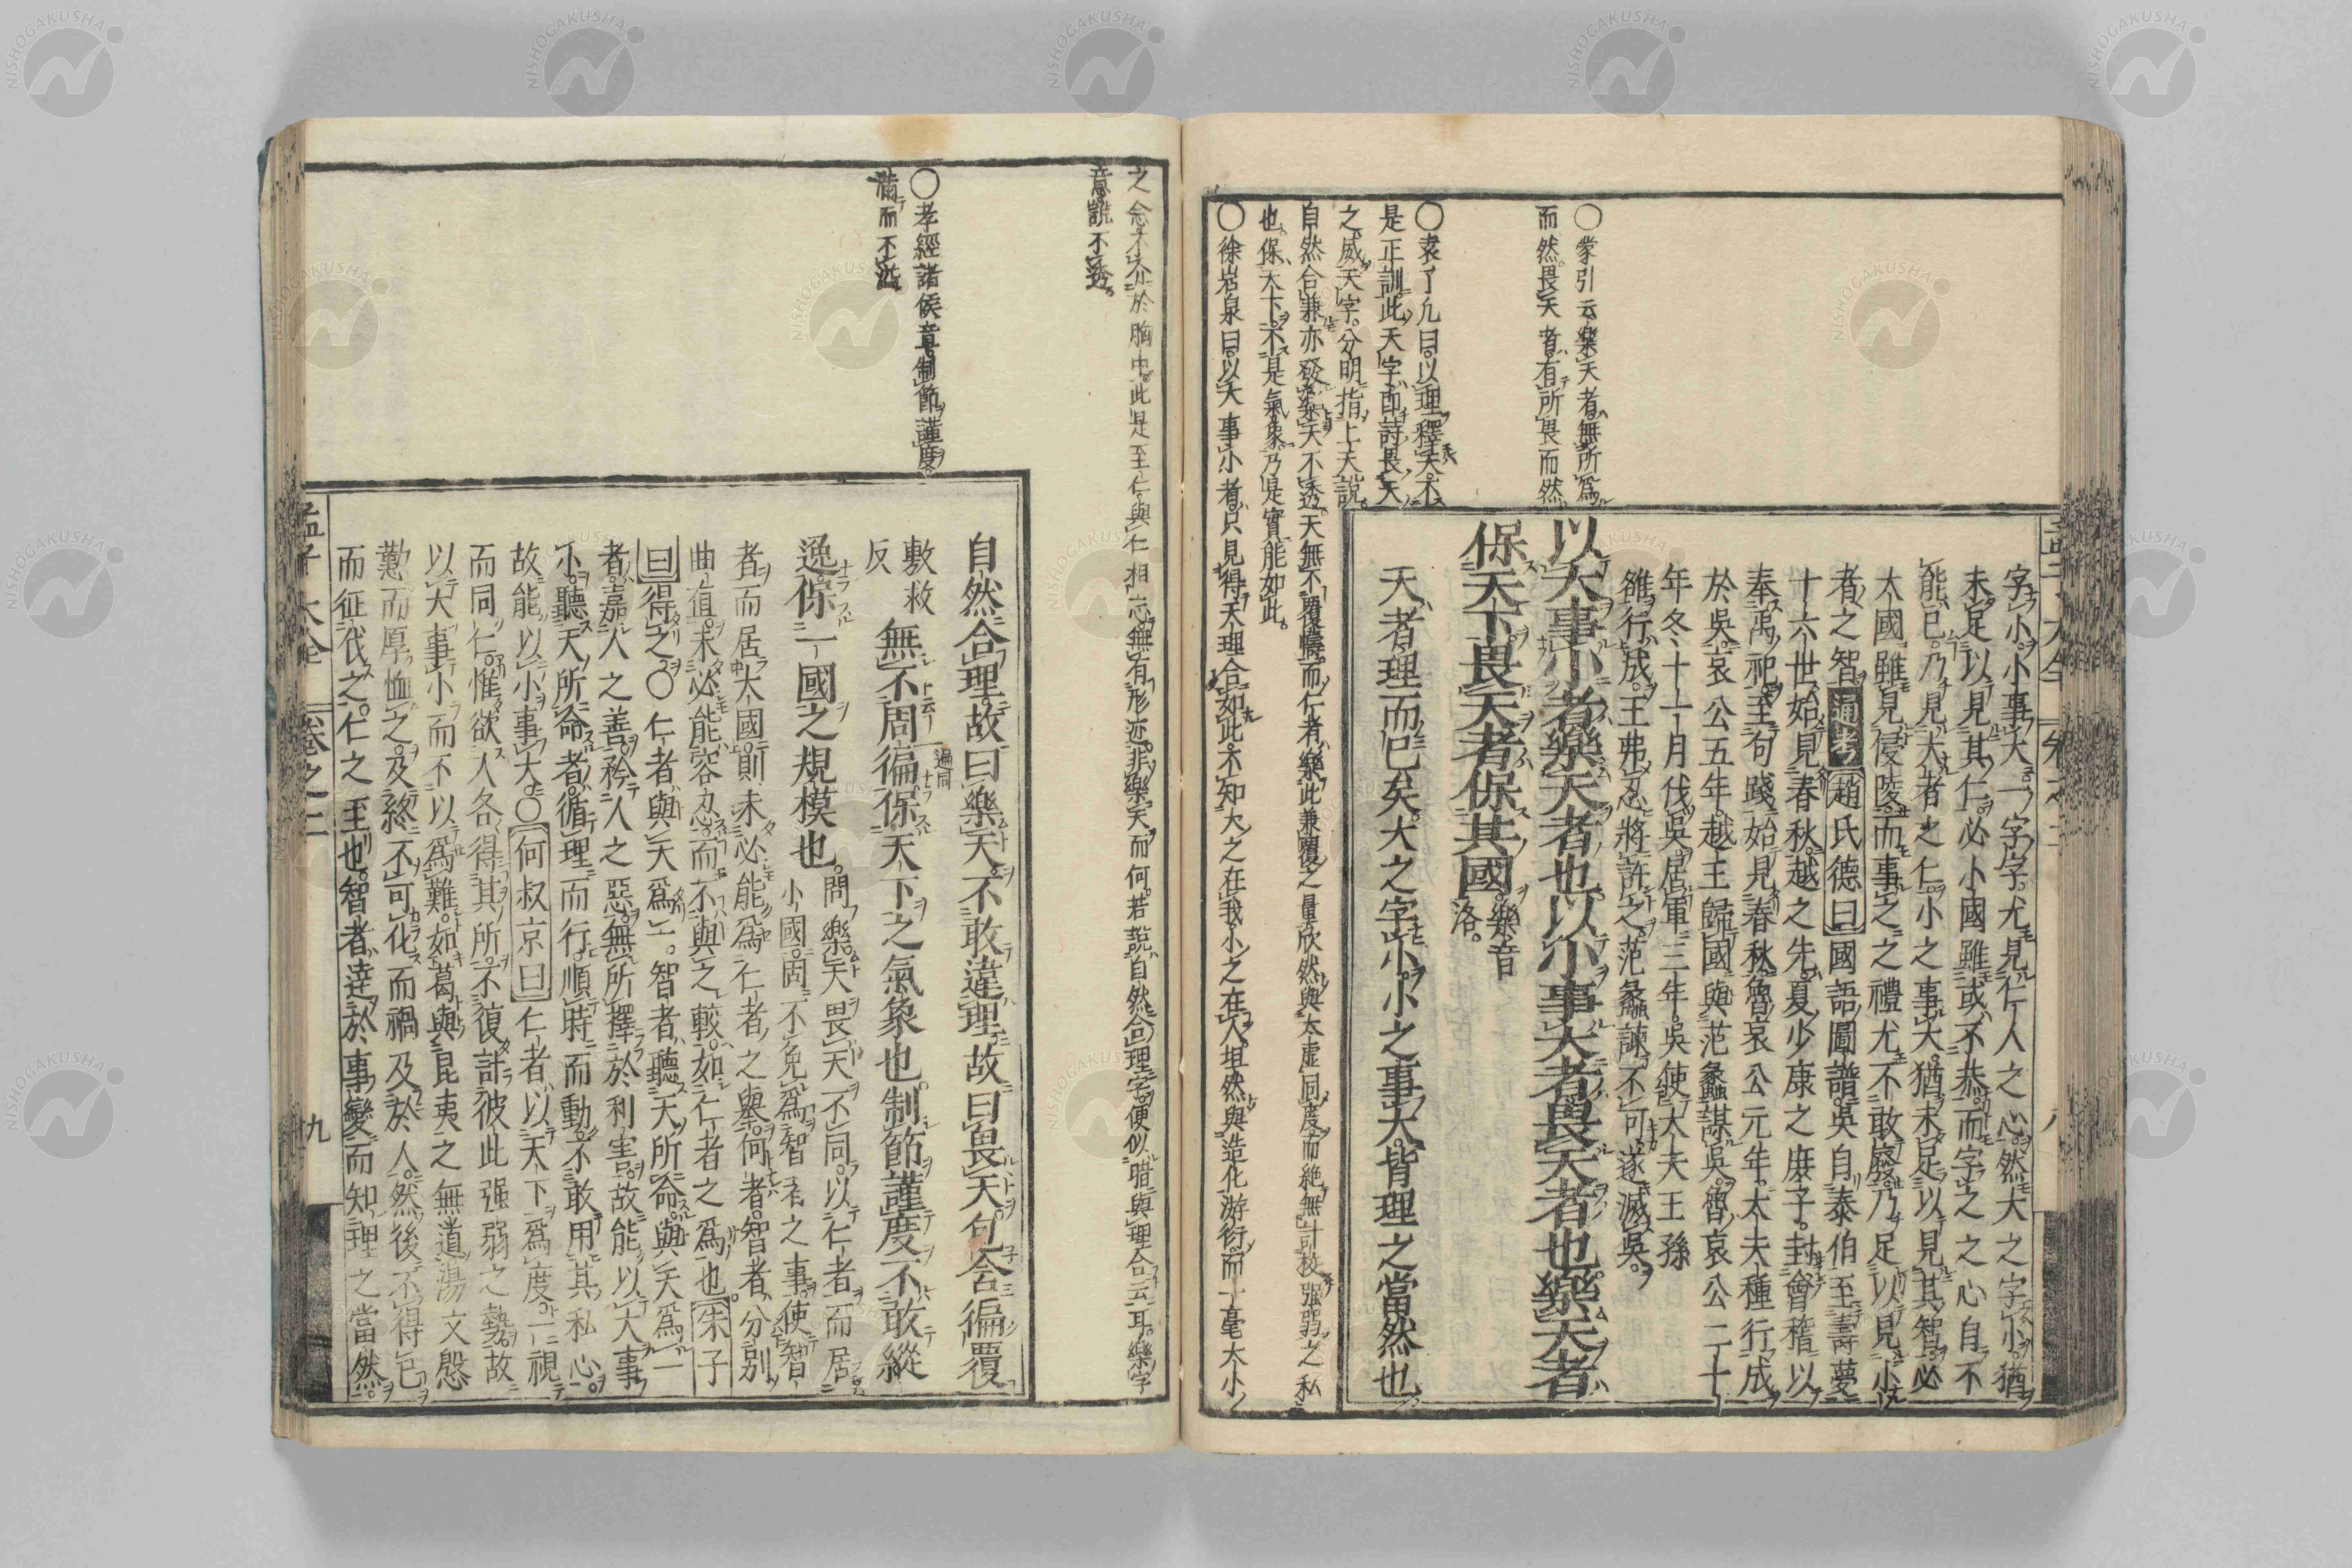 〇蒙引云樂天者無所爲
而然畏天者有所畏而然
〇袁了凡曰以理釋天不
是正訓此天字卽詩畏天
之威天字分明指上天說
自然合兼亦發樂天不透天無不覆幬而仁者樂此兼覆之量欣然與太虛同度而絕無計校强弱之私
也保天下不是氣象乃是實能如此
〇徐岩泉曰以大事小者只見得天理合如此不知大之在我小之在人坦然與造化游衍而一毫大小
字小小事大一字字尤見仁人之心然大之字小猶
未足以見其仁必小國雖或不恭而字之之心自不
能已乃見大者之仁小之事大猶未足以見其智必
大國雖見侵陵而事之之禮尤不敢廢乃足以見小
者之智通考趙氏德曰國語圖譜吳自泰伯至壽夢
十六世始見春秋越之先夏少康之庶子封會稽以
奉禹祀至句踐始見春秋魯哀公元年大夫種行成
於吳哀公五年越王歸國與范蠡謀吳魯哀公二十
年冬十一月伐吳居軍三年吳使大夫王孫
雒行成王弗忍將許之范蠡諫不可遂滅吳
以大事小者樂天者也以小事大者畏天者也樂天者
保天下畏天者保其國樂音
洛
天者理而已矣大之字小小之事大皆理之當然也
之念不介於胸中此是至仁與仁相忘無有形迹非樂天而何若說自然合理字便似將與理合云耳樂字
意誰不透
〇孝經諸侯章制節謹度
滿而不溢
自然合理故曰樂天不敢違理故曰畏天句含徧覆
敷救
反
無不周徧遍同保天下之氣象也制節謹度不敢縱
逸保一國之規模也問樂天畏天不同以仁者而居
小國固不免爲智者之事使智
者而居大國則未必能爲仁者之擧何者智者分別
曲直未必能容忍而不與之較如仁者之爲也朱子
曰得之〇仁者與天爲一智者聽天所命與天爲一
者嘉人之善矜人之惡無所擇於利害故能以大事
小聽天所命者循理而行順時而動不敢用其私心
故能以小事大〇何叔京曰仁者以天下爲度一視
而同仁惟欲人各得其所不復計彼此强弱之勢故
以大事小而不以爲難如葛與昆夷之無道湯文慇
懃而厚恤之及終不可化而禍及於人然後不得已
而征伐之仁之至也智者達於事變而知理之當然
孟子大全
卷之二
九